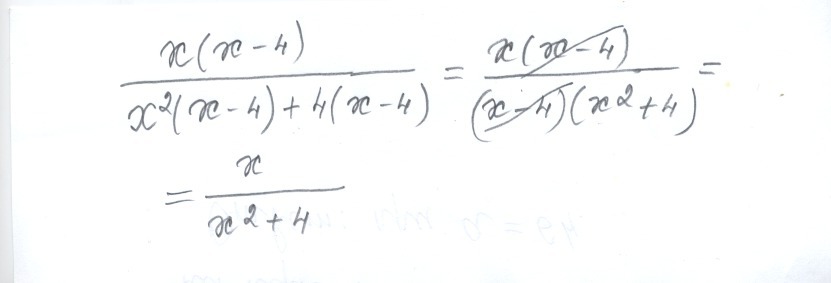 x(x-4) / x²(x-4)+4(x-4) = x(x-4) / (x-4)(x²+4) =
= x / x²+4